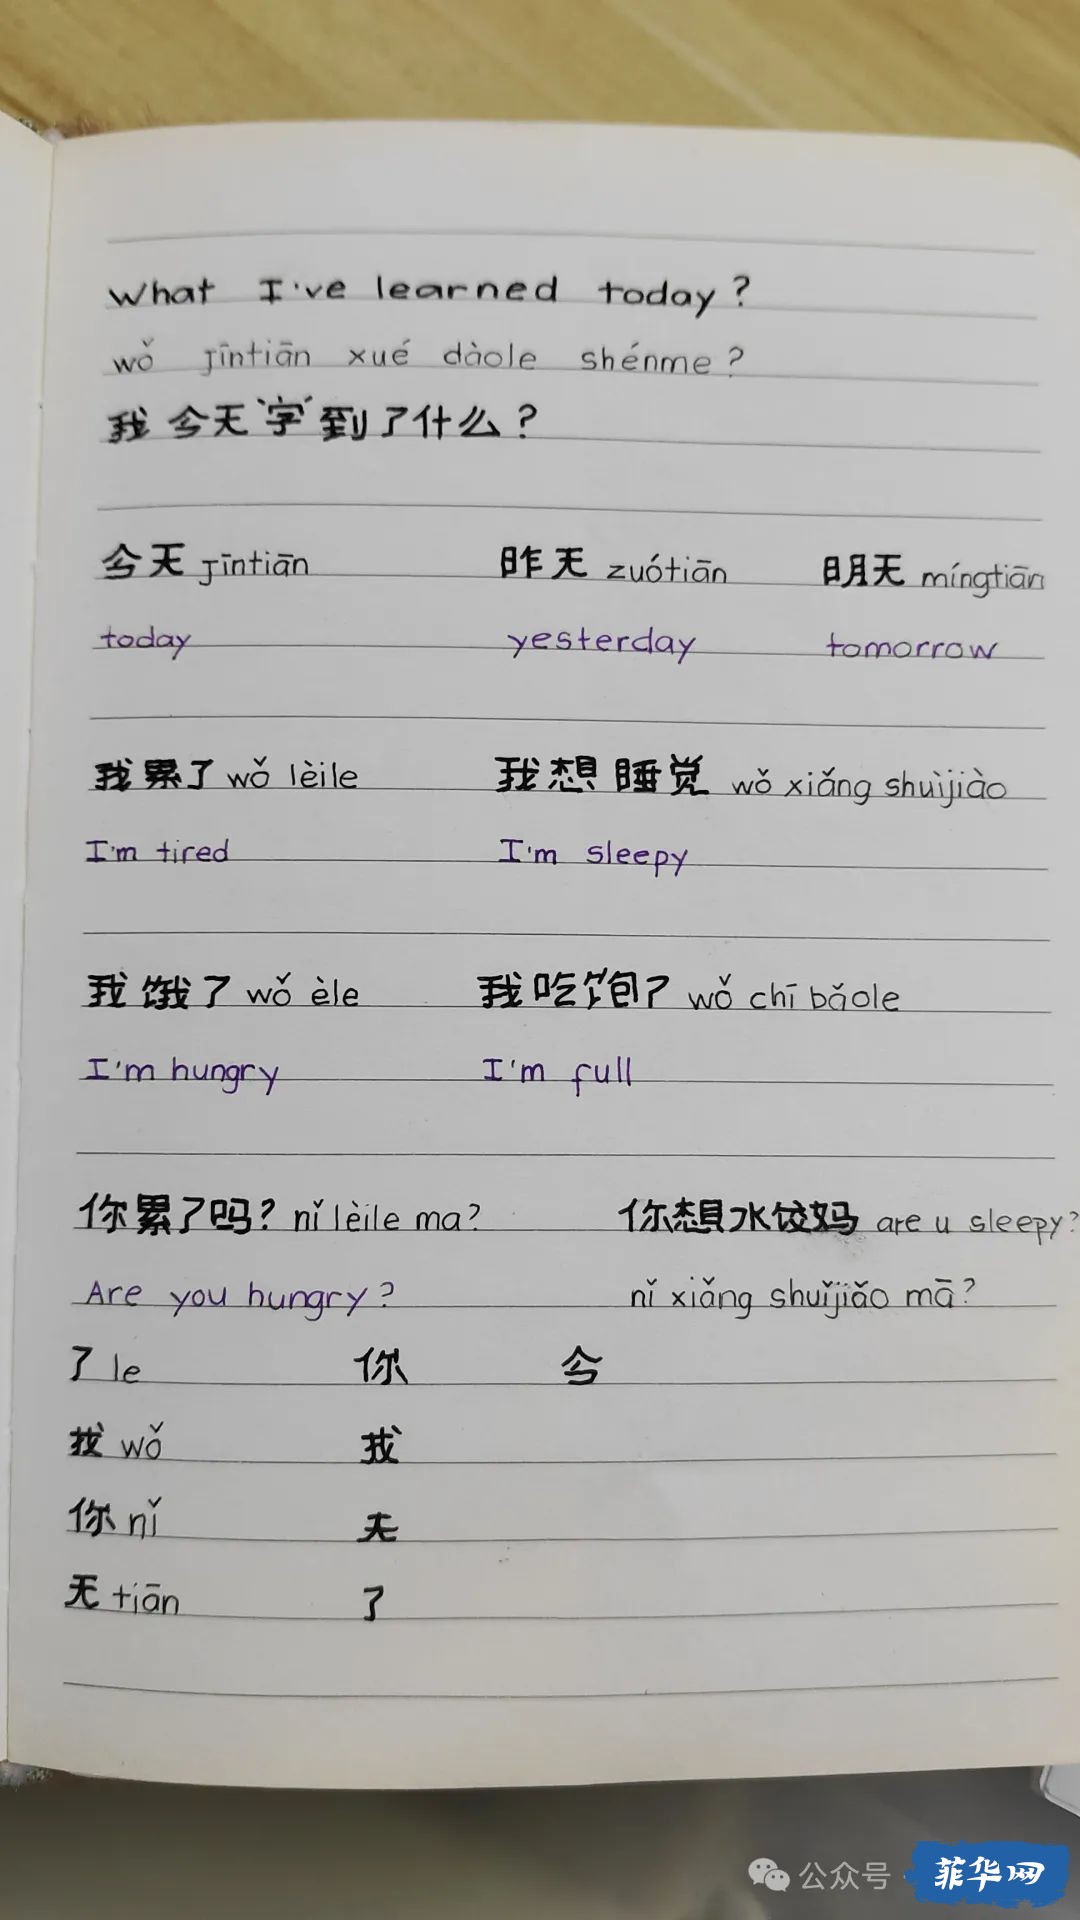 What I've learned today?
wǒ jīntiān xué dàole shénme?
我今天字到了什么?
今天 jīntiān 昨天 zuótiān 明天 míngtiān
today yesterday tomorrow
我累了 wǒ lèile 我想睡觉 wǒ xiǎng shuìjiào
I'm tired I'm sleepy
我饿了 wǒ èle 我吃饱了 wǒ chī bǎole
I'm hungry I'm full
你累了吗? nǐ lèile ma? 你想水饺妈 are u sleepy?
Are you hungry? nǐ xiǎng shuǐjiǎo mā?
了 le 你 今
找 wǒ 找
你 nǐ 天
无 tiān 了
公众号·菲华网